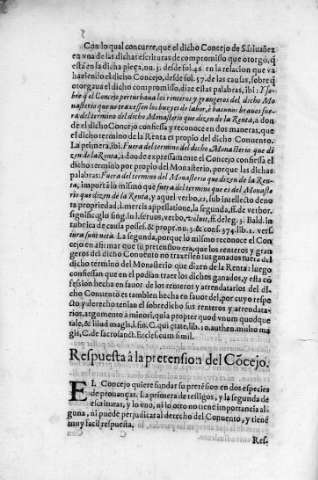 Con lo qual concurre, que el dicho Concejo de S. Ibañez
en vna de las dichas escrituras de compromisso que otorgò, q̃
està en la dicha pieça, nu. 5. desde fol. 48. en la relacion que va
haziendo el dicho Concejo, desde fol. 57. de las causas, sobre q̃
otorgaua el dicho compromisso, dize estas palabras, ibi: Y so-
bre q̃ el Concejo perturbaua los renteros y grangeros del dicho Mo
nasterio que no traxessen los bueyes de labor, è bacunos brauos fue-
ra del termino del dicho Monasterio que dizen de la Renta, a don-
de el dicho Concejo confiessa y reconoce en dos maneras, que
el dicho termino de la Renta es proprio del dicho Conuento.
La primera, ibi: Fuera del termino del dicho Monasterio que di
zen de la Renta, a dõde expressamente el Concejo confiessa el
dicho termino por proprio del Monasterio, porque las dichas
palabras: Fuera del termino del Monasterio que dizen de la Ren-
ta, importã lo mismo que fuera del termino que es del Monaste-
rio que dizen de la Renta, y aquel verbo, es, sub intellecto deno
ta propriedad, l. mercis appellatione, la segunda, ff. de verbor.
significat. glos. sing. in l. seruos, verbo, ff. de leg. 3. Bald. in
rubrica de causa posses. & propr. nu. 3. & cons. 374. lib. 1.
La segunda, porque lo mismo reconoce el Con-
cejo en afirmar que su pretension era, que los renteros y gran
geros del dicho Conuento no traxessen sus ganados fuera del
dicho termino del Monasterio que dizen de la Renta: luego
confiessan que en el podian traer los dichos ganados, y esta cõ
fession hecha en fauor de los renteros y arrendatarios del di-
cho Conuento es tambien hecha en fauor del, por cuyo respe-
cto y derecho tenian el sobredicho sus renteros y arrendata-
rios, argumento à minori, quia propter quod vnum quodque
tale, & illud magis, l. fin. C. qui
gis, C. de sacrosanct. Ecclesijs cum simil.
Respuesta à la pretension del Cõcejo.
EL Concejo quiere fundar su pretẽsion en dos especies
de prouanças. La primera de testigos, y la segunda de
escrituras, y lo vno, ni lo otro no tiene importancia al
guna, ni puede perjudicar al derecho del Conuento, y tiene
muy facil respuesta.
Res-